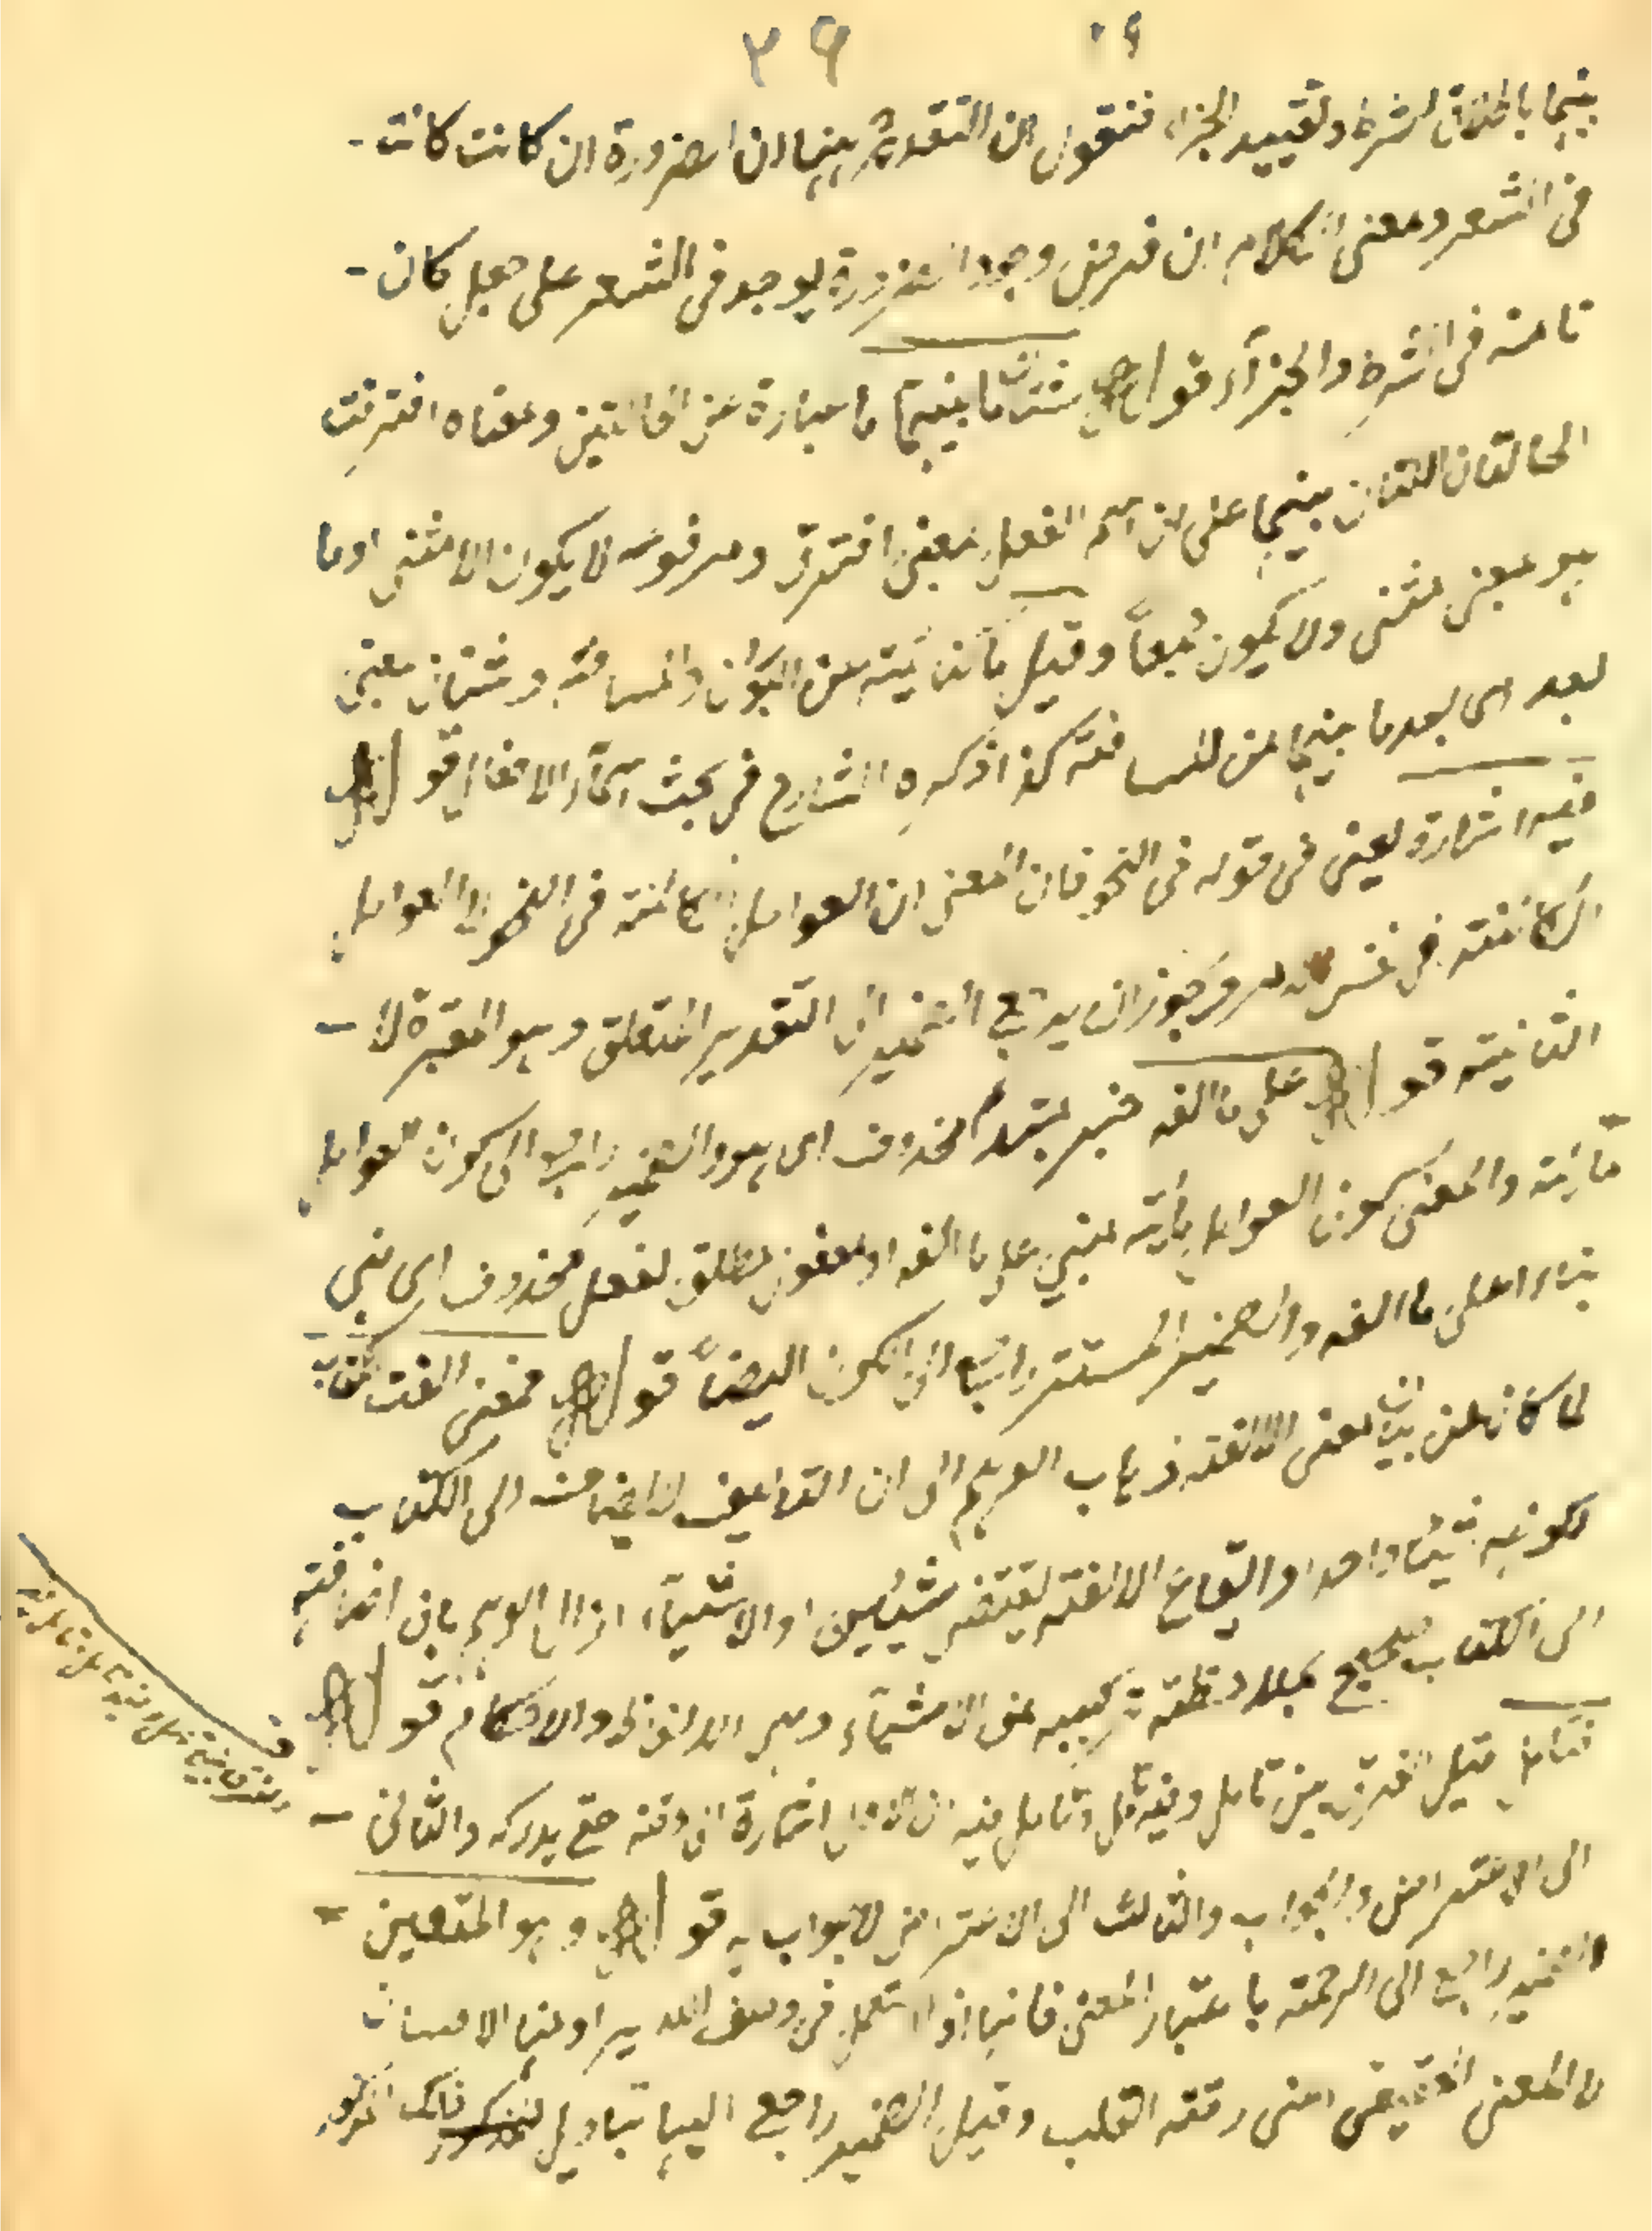 ٣٩
بينهما باطلاق الشرط وتقييد الجزاء فنقول ان التقدير بينهما ان الضرورة ان كانت كانت
فى الشعر ومعنى الكلام ان فرض وجود الضرورة يوجد فى الشعر على جعل كان
تامة فى الشرط والجزاء قوله شتان ما بينهما ما عبارة عن الحالتين ومعناه افترقت
الحالتان اللتان بينهما على ان اسم الفعل بمعنى افترق ومرفوعه لا يكون الا مثنى او ما
هو بمعنى مثنى ولا يكون جمعاً وقيل ما كناية عن البون والمسافة وشتان بمعنى
بعد اى بعد ما بينهما من المسافة كذا ذكره الشارح فى بحث اسماء الافعال قوله
فيه اشارة يعنى فى قوله فى النحو فان المعنى ان العوامل الكائنة فى النحو لا العوامل
الكائنة فى نفس الامر ويجوز ان يرجع الضمير الى التقدير المتعلق وهو المعتبرة لا
الثانية قوله على ما الفه خبر مبتدأ محذوف اى هو والضمير راجع الى كون العوامل
مأية والمعنى كون العوامل مأية مبنى على ما الفه او مفعول مطلق لفعل محذوف اى بنى
بناء على ما الفه والضمير المستتر راجع الى الكون ايضاً قوله فمعنى الفت كتاب
لما كان من بيان معنى الالفة ذهاب الوهم الى ان التأليف لا يضاف الى الكتاب
لكونه شيئا واحدا وايقاع الالفة يقتضى شيئين او الاشياء ازال الوهم بان اضافته
الى الكتاب صحيح بملاحظة تركيبه من الاشياء وهى الالفاظ والاحكام قوله
فتامل قيل الفرق بين تامل وفيه تامل وتامل فيه ان الاول اشارة الى دقة حتى يدركه والثانى
الى الاعتراض والجواب والثالث الى الاعتراض لا بجواب به قوله وهو المتعين
الضمير راجع الى الرحمة باعتبار المعنى فانها اذا استعمل فى وصف الله يراد منها الاحسان
لا المعنى الحقيقى اعنى رقة القلب وقيل الضمير راجع اليها بتاويل المذكور
ف
الفرق بين تامل وفيه تامل وتامل فيه